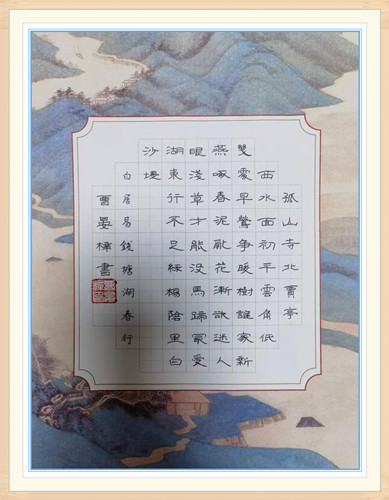 孤山寺北賈亭
西水面初平雲角低
幾處早鶯爭暖樹誰家新
燕啄春泥亂花漸欲迷人
眼淺草才能没馬蹄最愛
湖東行不足綠楊陰里白
沙堤
白居易錢塘湖春行
曹晏樟書